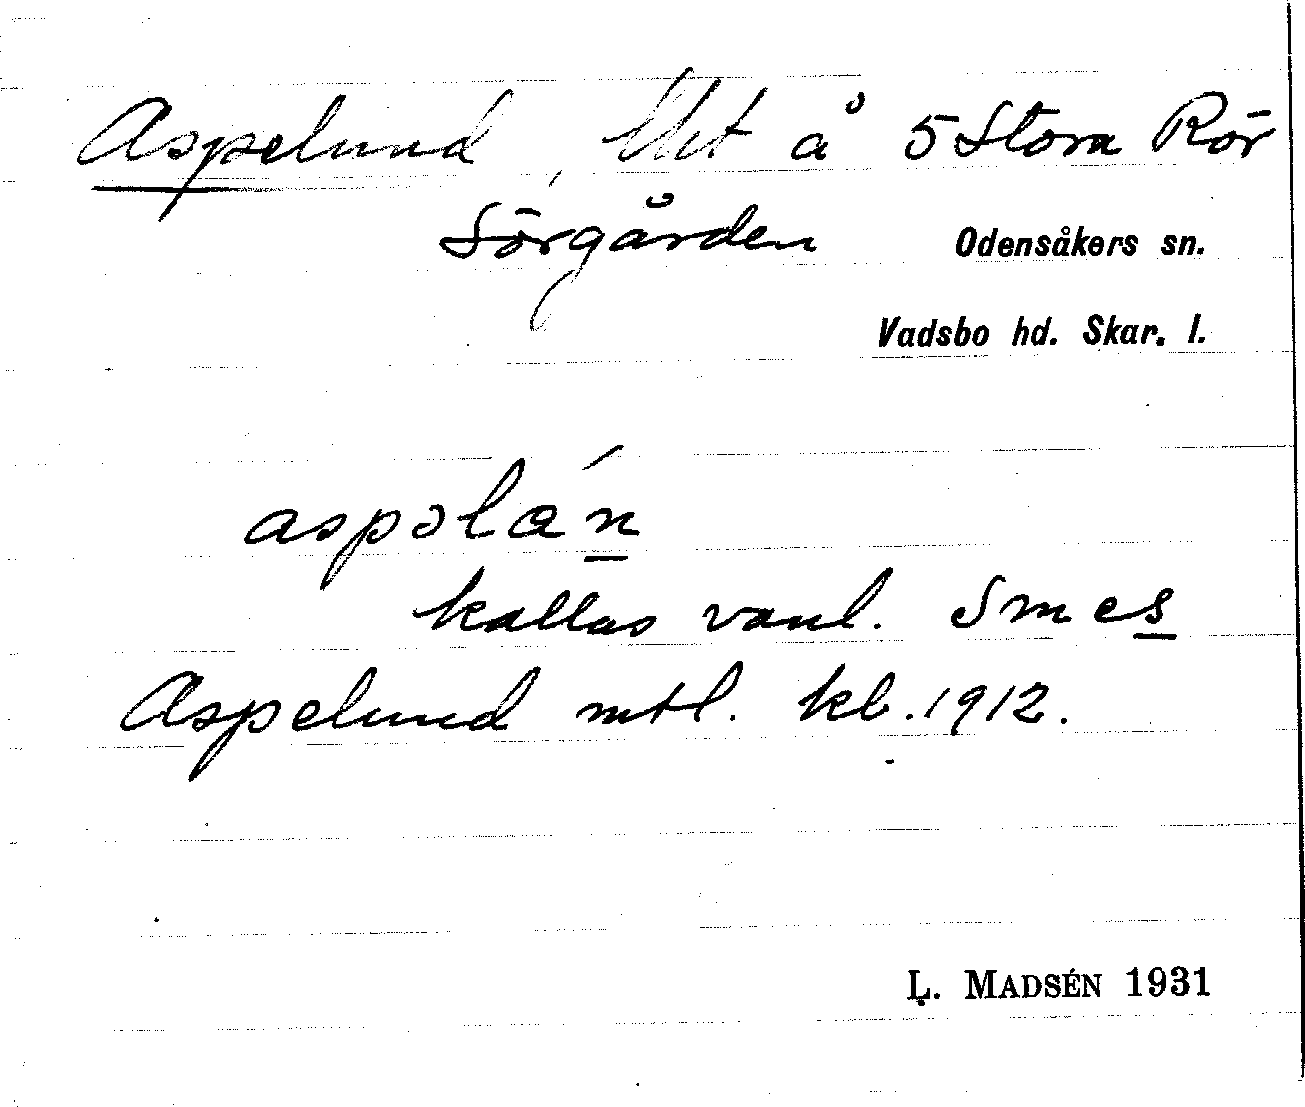 Aspelund, Ut å 5 Stora Rör
Sörgården Odensåkers sn.
Vadsbo hd. Skar. l.
aspəlán
kallas vanl. Smes
Aspelund mtl. kb. 1912.
L. MADSÉN 1931